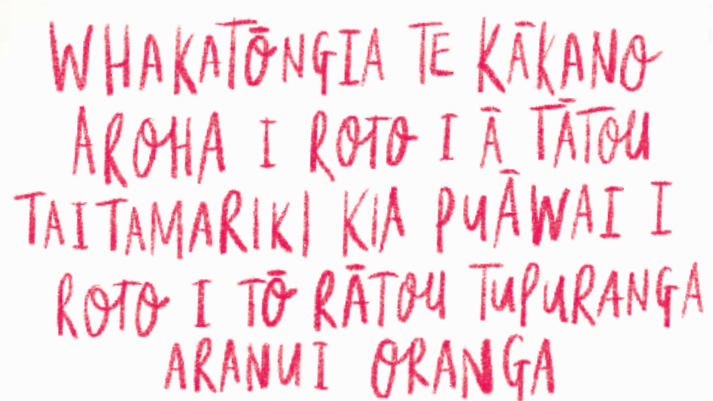 WHAKATŌNGIA TE KĀKANO
AROHA I ROTO I Ā TĀTOU
TAITAMARIKI KIA PUĀWAI I
ROTO I TŌ RĀTOU TUPURANGA
ARANUI ORANGA